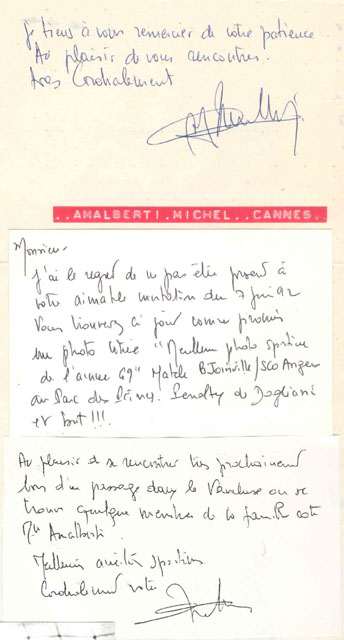 Je tiens à vous remercier de votre patience
Au plaisir de vous rencontrer.
Très Cordialement
..AMALBERTI.MICHEL..CANNES..
Monsieur
J'ai le regret de ne pas être present à
votre aimable invitation du 7 Juin 92
Vous trouverez ci joint comme promis
une photo titrée "Meilleure photo sportive
de l'année 69" Match /SCO Angers
au Parc des Princes. de Dogliani
et tout !!!
Au plaisir de se rencontrer très prochainement
lors d'un passage dans le Vaucluse ou se
trouve quelque membres de la famille coté
Amalberti
Meilleures amitiés sportives
Cordialement votre